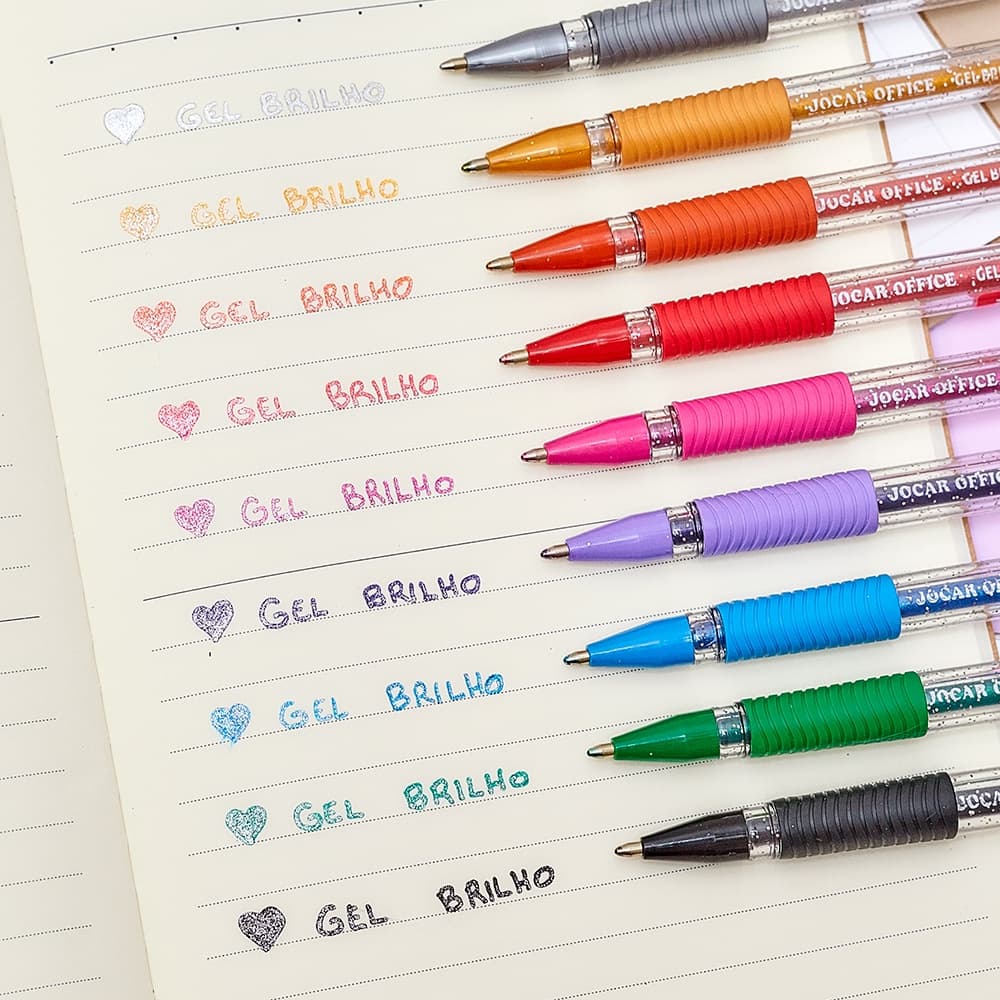 JOCAR
GEL BRILHO
JOCAR OFFICE · GEL BRI
GEL BRILHO
JOCAR OFFICE · GEL B
GEL BRILHO
JOCAR OFFICE · GEL
GEL BRILHO
JOCAR OFFICE
GEL BRILHO
JOCAR OFFIC
GEL BRILHO
JOCAR OF
GEL BRILHO
JOCAR
GEL BRILHO
JOCAR
GEL BRILHO